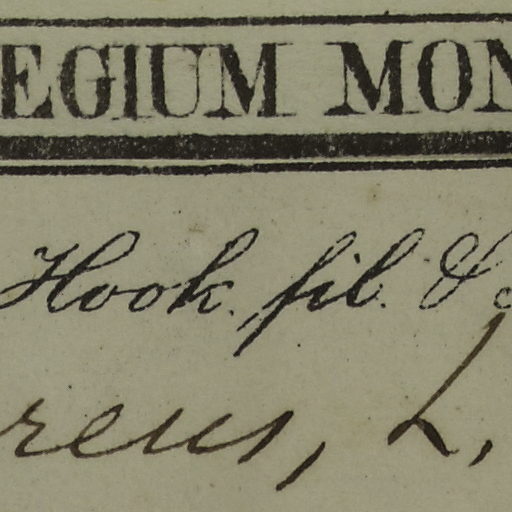 EGIUM MON
Hook. fil. &
reus, L.